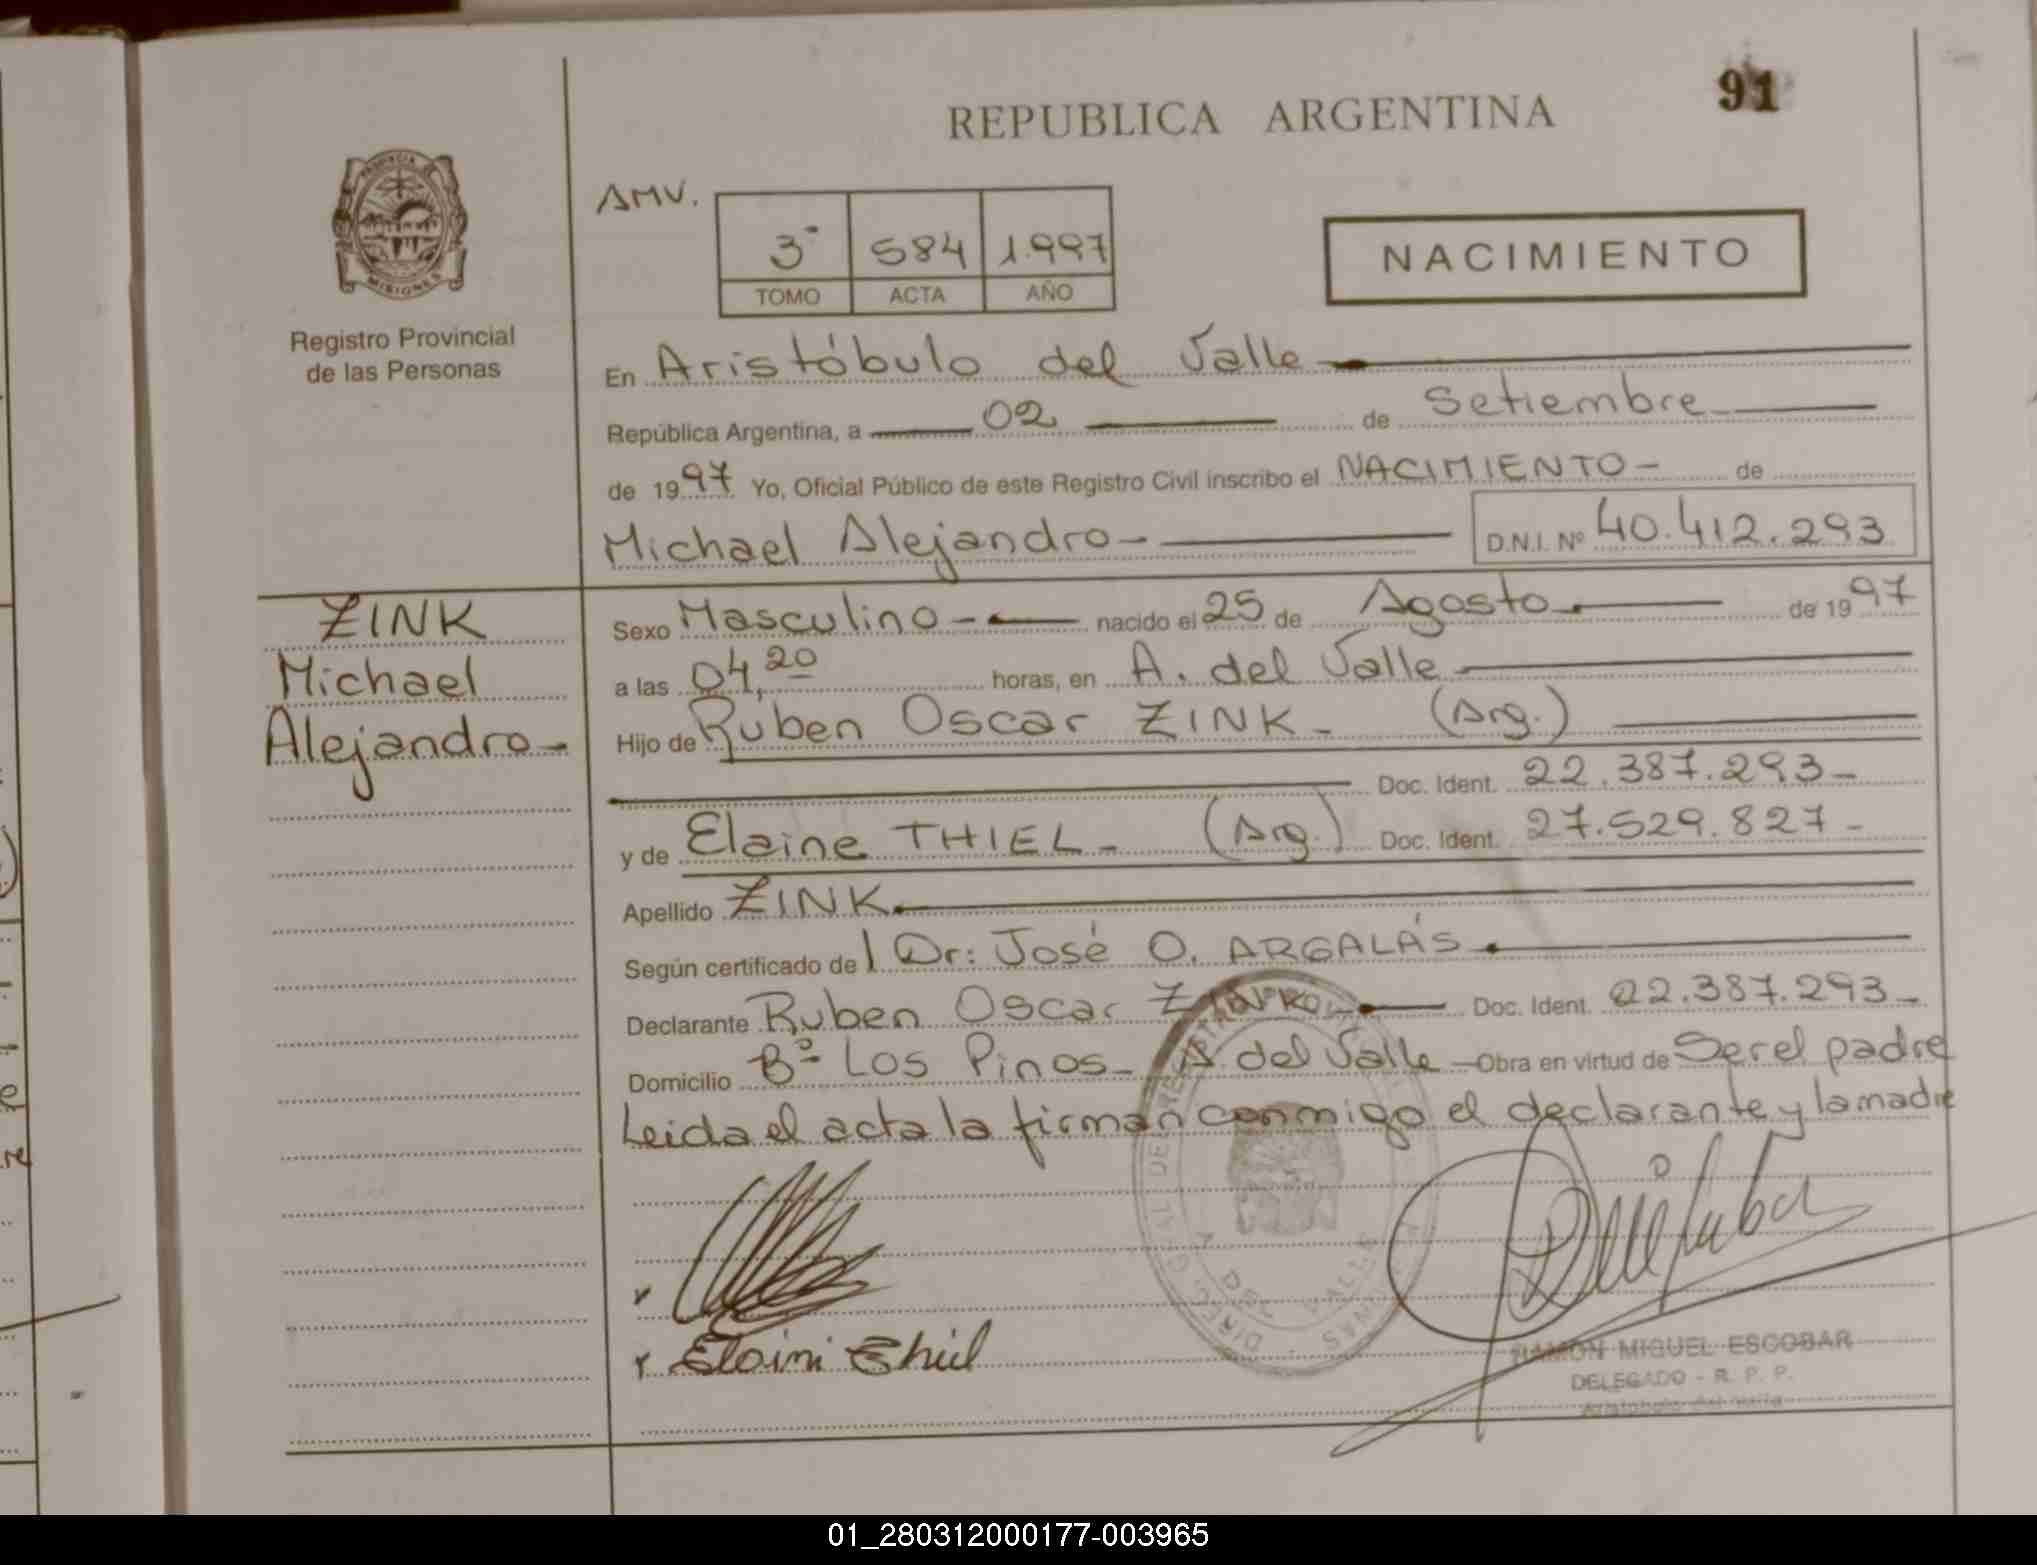 91
REPUBLICA ARGENTINA
PROVINCIA
MISIONES
Registro Provincial
de las Personas
AMV.
3° 584 1.997
TOMO ACTA AÑO
NACIMIENTO
En Aristóbulo del Valle
República Argentina, a 02 de Setiembre
de 1997 Yo, Oficial Público de este Registro Civil inscribo el NACIMIENTO- de
Michael Alejandro- D.N.I. Nº 40.412.293
ZINK
Michael
Alejandro-
Sexo Masculino- nacido el 25 de Agosto de 1997
a las 04,20 horas, en A. del Valle
Hijo de Rúben Oscar ZINK- (Arg.)
Doc. Ident. 22.387.293-
y de Elaine THIEL- (Arg.) Doc. Ident. 27.529.827-
Apellido ZINK
Según certificado del Dr: José O. ARGALÁS
Declarante Ruben Oscar ZINK- Doc. Ident. 22.387.293-
Domicilio Bº Los Pinos- A. del Valle - Obra en virtud de Ser el padre
Leida el acta la firman conmigo el declarante y la madre
DEL VALLE
RAMON MIGUEL ESCOBAR
DELEGADO - R. P. P.
Aristobulo del Valle
01_280312000177-003965